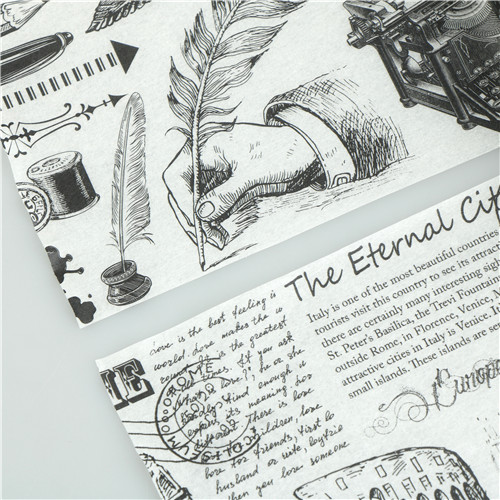 The Eternal Cit
Italy is one of the most beautiful countries
tourists visit this country to see its attrac
there are certainly many interesting sigh
St. Peter's Basilica, the Trevi Fountain
outside Rome, in Florence, Venice,
attractive cities in Italy is Venice.
small islands. These islands are se
love is the best feeling is
world. Love makes the w
is the greatest
times. If you ask
love?", he or she
find enough w
its meaning bor
There is love
of children love
love for friends, first lo
husband or wife, boyfrie
then you lose someone
ME
ROME
COLISEUM